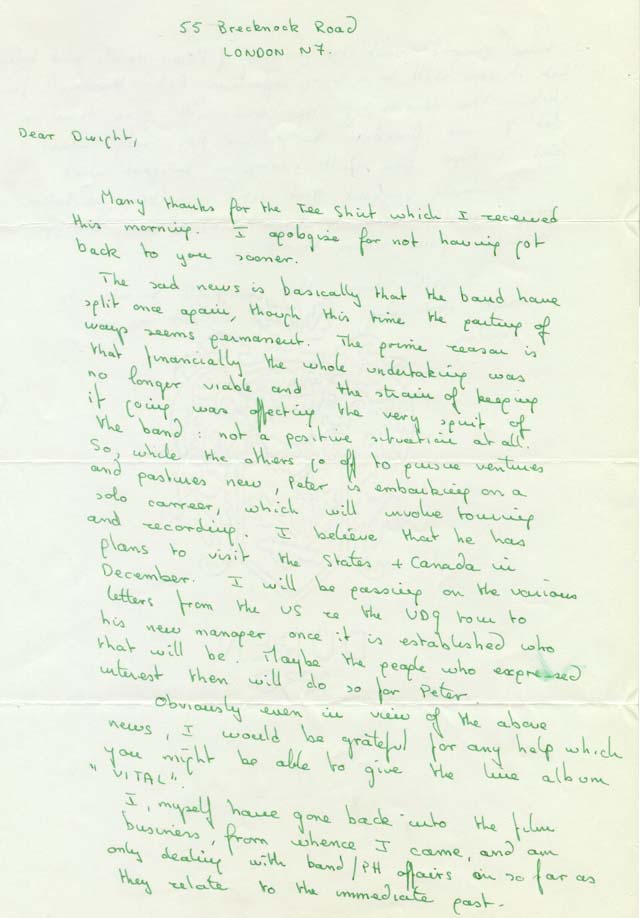 55 Brecknock Road
LONDON N7.
Dear Dwight,
Many thanks for the Tee Shirt which I received
this morning. I apologise for not having got
back to you sooner.
The sad news is basically that the band have
split once again, though this time the parting of
ways seems permanent. The prime reason is
that financially the whole undertaking was
no longer viable and the strain of keeping
it going was affecting the very spirit of
the band: not a positive situation at all.
So, while the others go off to pursue ventures
and pastures new, Peter is embarking on a
solo carreer, which will involve touring
and recording. I believe that he has
plans to visit the States + Canada in
December. I will be passing on the various
letters from the US re the VDG tour to
his new manager once it is established who
that will be. Maybe the people who expressed
interest then will do so for Peter.
Obviously even in view of the above
news, I would be grateful for any help which
you might be able to give the live album
"VITAL".
I, myself have gone back into the film
business, from whence I came, and am
only dealing with band/PH affairs in so far as
they relate to the immediate past.